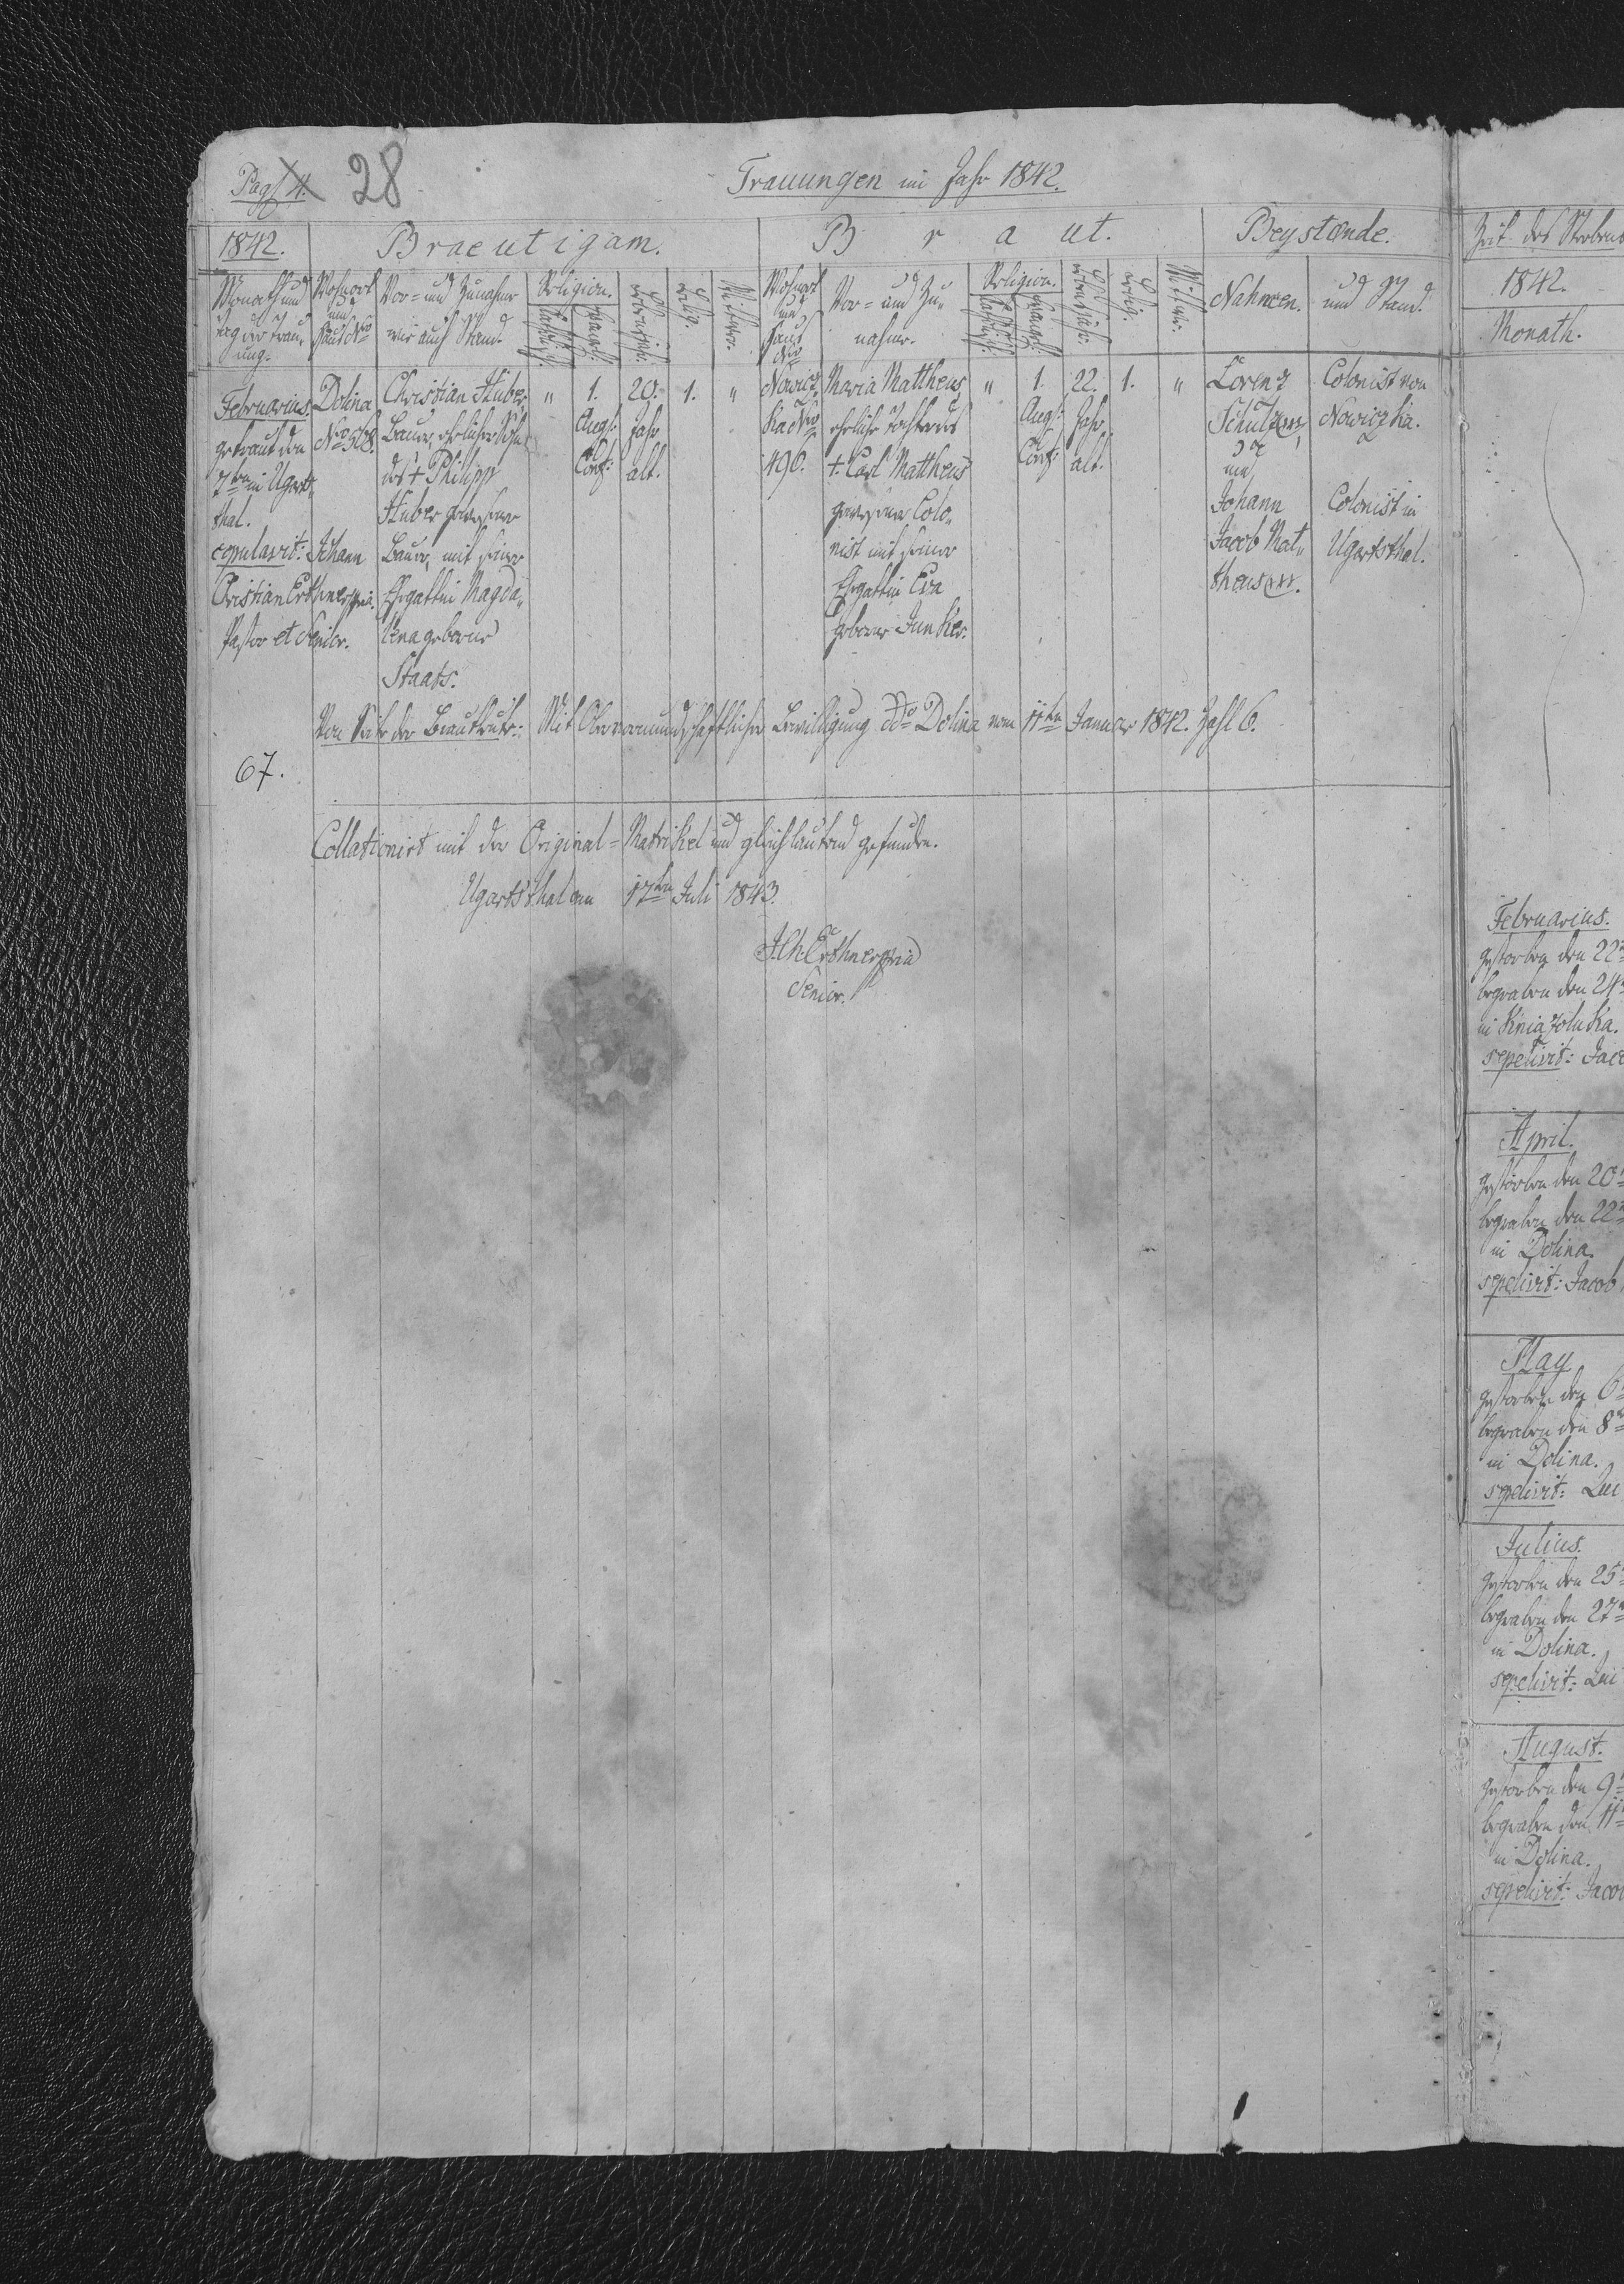 Pag. 4. 28
Trauungen im Jahr 1842.
1842. Braeutigam. Braut. Beystande.
Monath und Tag der Trauung. Wohnort und Haus Nro Vor= und Zunahme wie auch Stand. Religion. Lebensjahr. Ledig. Wittwer. Wohnort und Haus Nro Vor= und Zunahme. Religion. Lebensjahr. Ledig. Wittwe. Nahmen. und Stand.
Februarius. Dolina Christian Huber, " 1. 20. 1. " Nowicz Maria Mattheus " 1. 22. 1. " Lorenz Colonist von
getraut den Nro 508. Bauer, ehelicher Sohn Augs: Jahr ka Nro eheliche Tochter des Augs: Jahr Schultz Nowiczka.
7ten in Ugarts des + Philipp Conf: alt. 490. + Carl Mattheus Conf: alt. und
thal. Huber gewesener gewesener Colo= Johann Colonist in
copulavit: Johann Bauer, mit seiner nist mit seiner Jacob Mat= Ugartsthal.
Cristian Erthner Ehegattin Magda= Ehegattin Eva theus
Pastor et Senior. lena geborne geborne Junker.
Staats.
Von Seite der Brautleute: Mit Obervormundschaftlicher Bewilligung ddo Dolina vom 11ten Januar 1842. Zahl 6.
67.
Collationirt mit der Original=Matrikel und gleichlautend gefunden.
Ugartsthal am 17ten Juli 1843.
J. Ch Erthner
Senior.
Zeit des Sterbens
1842.
Monath.
Februarius.
gestorben den 22
begraben den 24
in Kniazoluka.
sepelivit: Jaco
April.
gestorben den 20
begraben den 22
in Dolina.
sepelivit: Jacob
May
gestorben den 6
begraben den 8
in Dolina.
sepelivit:
Julius.
gestorben den 25
begraben den 27
in Dolina.
sepelivit:
August.
gestorben den 9
begraben den 11
in Dolina.
sepelivit: Jacob